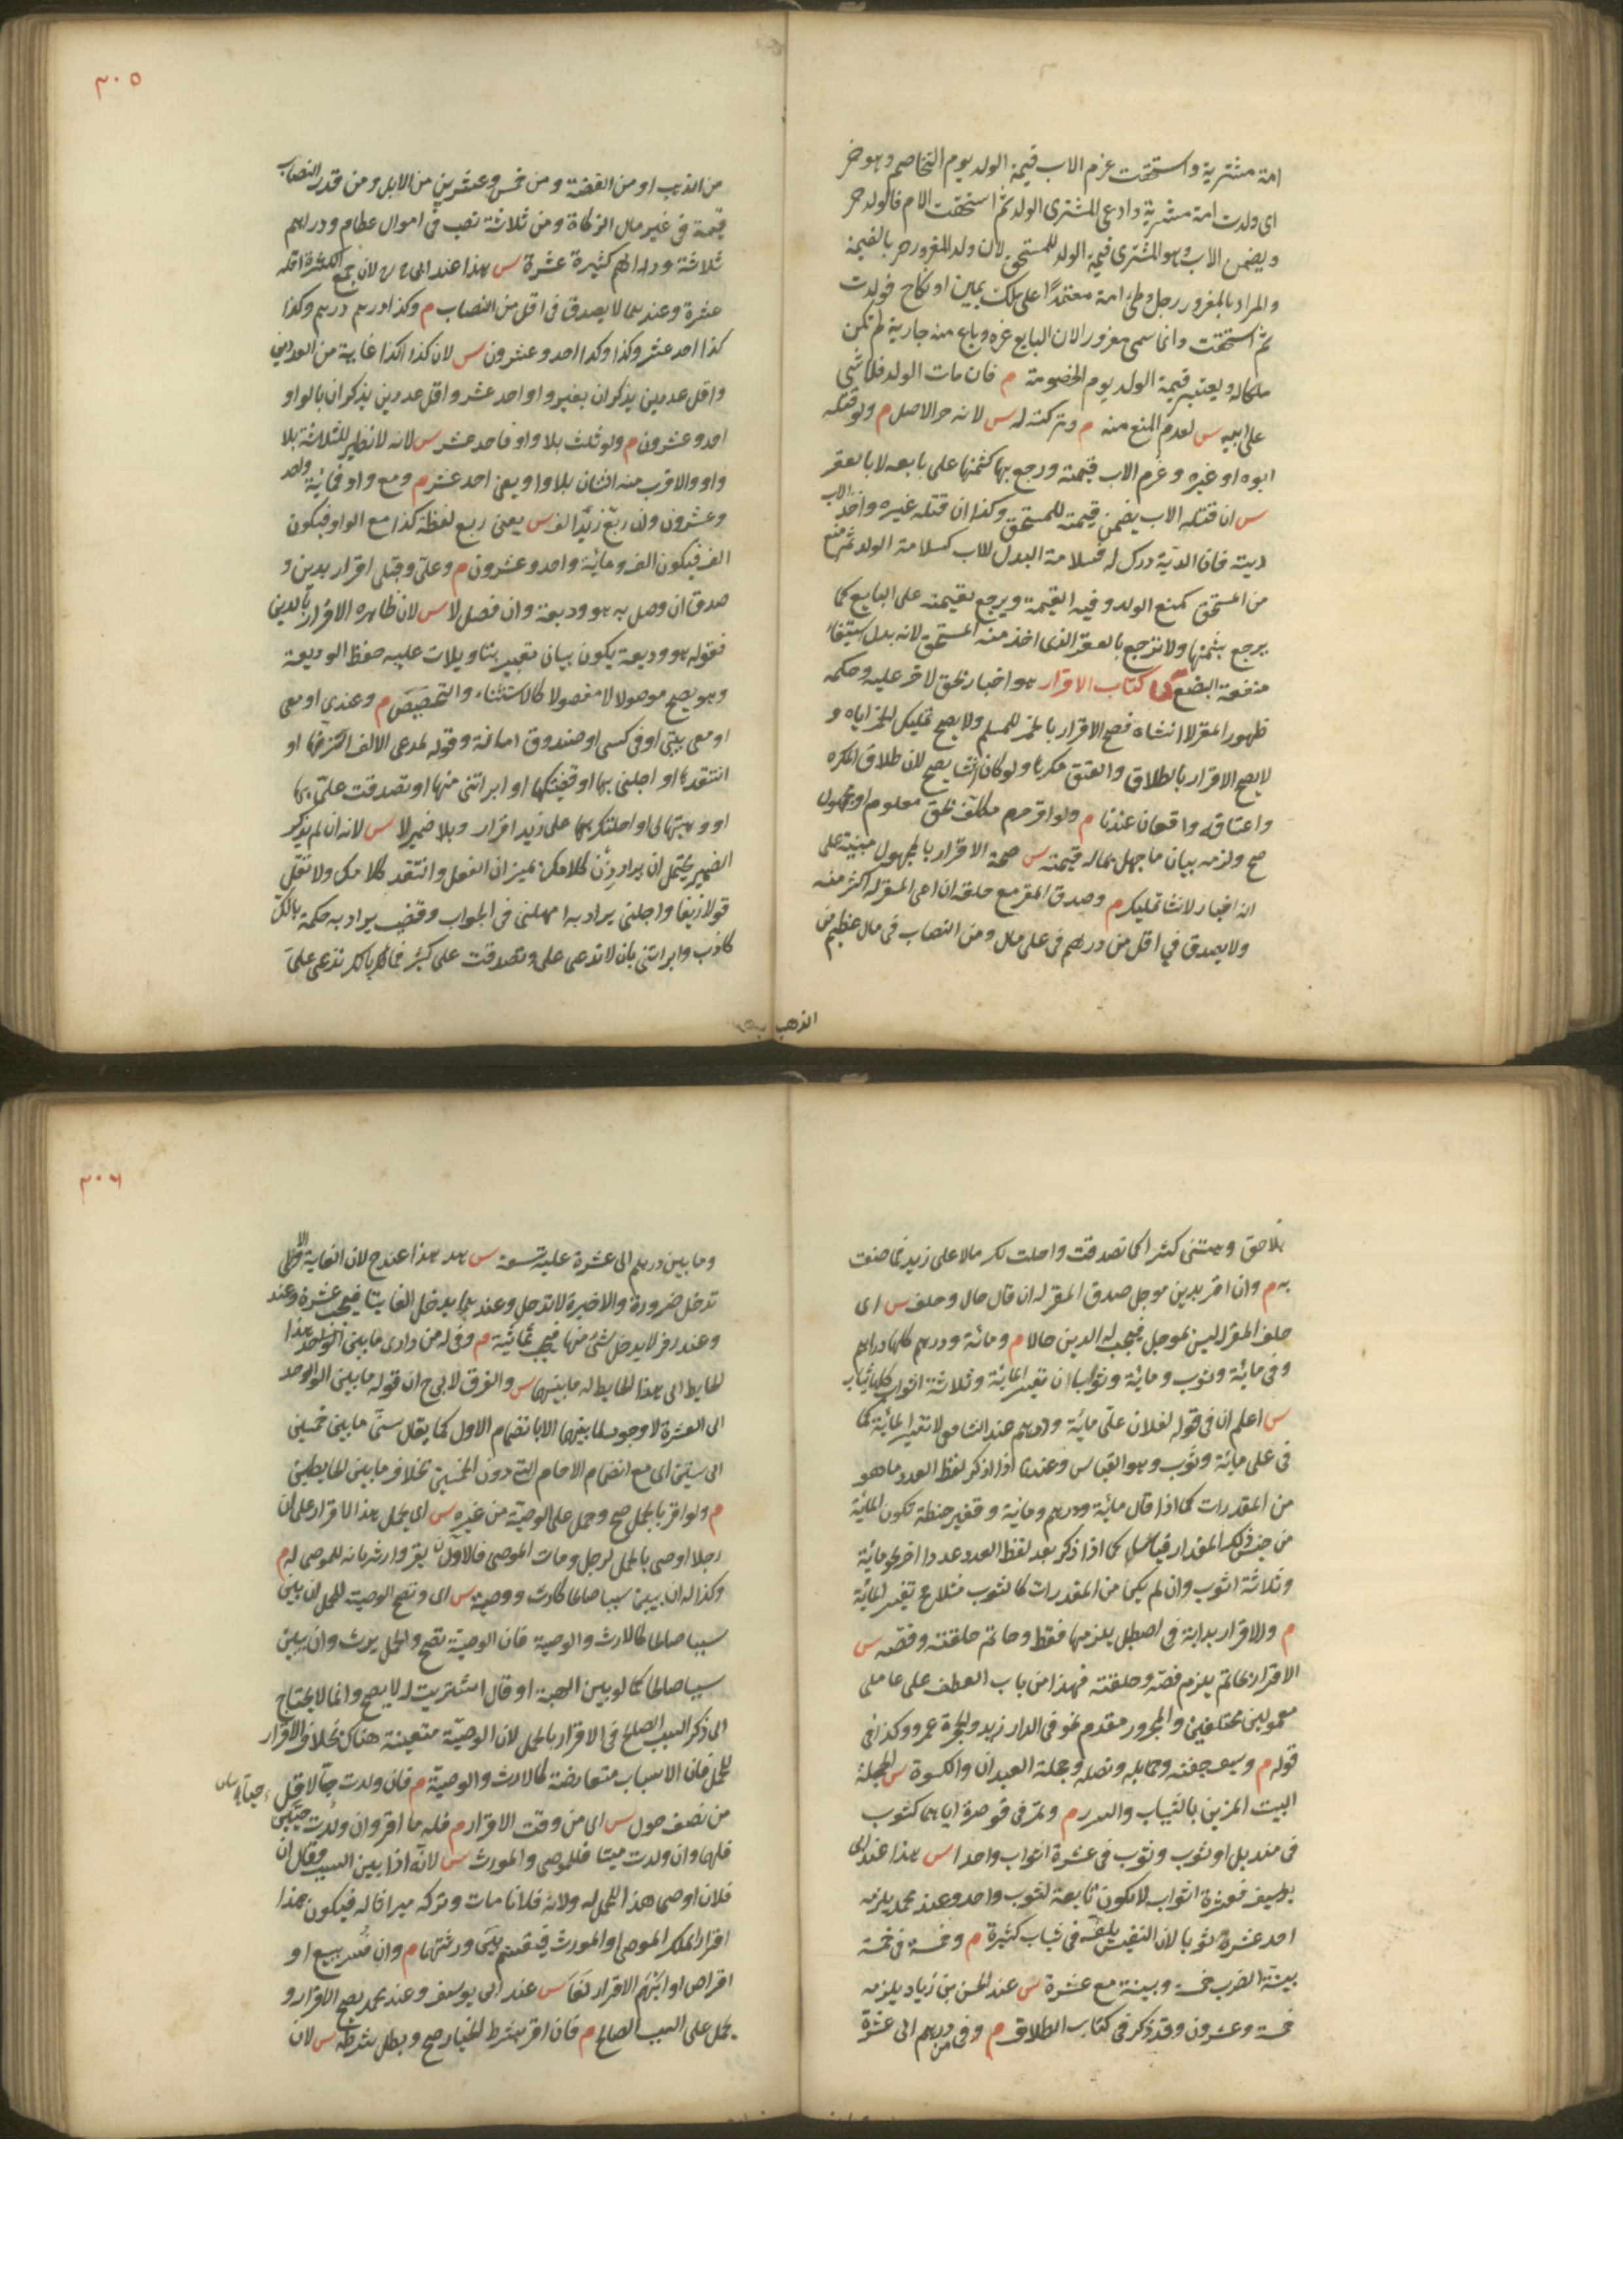 امة مشترية واستحقت غرم الاب قيمة الولد يوم التخاصم وهو حر
اى ولدت امة مشترية وادعى المشترى الولد ثم استحقت الام فالولد حر
ويضمن الاب وهو المشترى قيمة الولد للمستحق لان ولد المغرور حر بالقيمة
والمراد بالمغرور رجل وطئ امة معتمدًا على ملك يمين او نكاح فولدت
ثم استحقت وانما سمى مغرورا لان البايع غره وباع منه جارية لم تكن
ملكا له ويعتبر قيمة الولد يوم الخصومة م فان مات الولد فلا شئ
على ابيه س لعدم المنع منه م وتركته له س لانه حر الاصل م ولو قتله
ابوه او غيره وغرم الاب قيمته ورجع بها كثمنها على بايعه لا بالعقر
س ان قتله الاب يضمن قيمته للمستحق وكذا ان قتله غيره واخذ الاب
ديته فان الدية درك له فسلامة البدل للاب كسلامة الولد ثم منع
من المستحق كمنع الولد وفيه القيمة ويرجع بقيمته على البايع كما
يرجع بثمنها ولا ترجع بالعقر الذى اخذ منه المستحق لانه بدل استيفاء
منفعة البضع كتاب الاقرار هو اخبار بحق لاخر عليه وحكمه
ظهور المقر لا انشاه فصح الاقرار بالخمر للمسلم ولا يصح تمليك الخمر اياه و
لا يصح الاقرار بالطلاق والعتق مكرها ولو كان انشا يصح لان طلاق المكره
واعتاقه واقعان عندنا م ولو اقر حر مكلف بحق معلوم او مجهول
صح ولزمه بيان ما جهل بما له قيمة س صحة الاقرار بالمجهول مبنية على
انه اخبار لا انشا تمليك م وصدق المقر مع حلفه ان ادعى المقر له اكثر منه
ولا يصدق فى اقل من درهم فى على مال ومن النصاب فى مال عظيم من
الذهب
٣٠٥
من الذهب او من الفضة ومن خمس وعشرين من الابل ومن قدر النصاب
قيمة فى غير مال الزكاة ومن ثلاثة نصب فى اموال عظام ودراهم
ثلاثة ودراهم كثيرة عشرة س هذا عند ابى ح لان جمع الكثرة اقله
عشرة وعندهما لا يصدق فى اقل من النصاب م وكذا درهم درهم وكذا
كذا احد عشر وكذا وكذا احد وعشرون س لان كذا كذا غاية من العددين
واقل عددين يذكران بغير واو احد عشر واقل عددين يذكران بالواو
احد وعشرون م ولو ثلث بلا واو فاحد عشر س لانه لا نظير للثلاثة بلا
واو والاقرب منه اثنان بلا واو يعنى احد عشر م ومع واو فمائة واحد
وعشرون وان ربع زيد الف س يعنى ربع لفظة كذا مع الواو فيكون
الف فيكون الف ومائة واحد وعشرون م وعلى وقبلى اقرار بدين و
صدق ان وصل به هو وديعة وان فصل لا س لان ظاهره الاقرار بالدين
فقوله هو وديعة يكون بيان تغيير بتاويلات عليه حفظ الوديعة
وهو يصح موصولا لا مفصولا كالاستثناء والتخصيص م وعندى او معى
او معى بيتى او فى كسى او صندوق امانة وقوله لمدعى الالف اتزنها او
انتقدها او اجلنى بها او قضيتكها او ابراتنى منها او تصدقت على بها
او وهبتها لى او احلتك بها على زيد اقرار وبلا ضمير لا س لانه ان لم يذكر
الضمير يحتمل ان يراد زن كلامك بميزان العقل وانتقد كلامك ولا تقل
قولا زيفا واجلنى يراد به امهلنى فى الجواب وقضى يراد به حكمة بانك
كاذب وابراتنى بان لا تدعى على وتصدقت على كثير فما لك تدعى على
بلا حق وهبتنى كثيرا كما تصدقت واحلت لك مالا على زيد فما صنعت
به م وان اقر بدين موجل صدق المقر له ان قال حال وحلف س اى
حلف المقر له ليس بموجل فيجب له الدين حالا م ومائة ودرهم كلها دراهم
وفى مائة وثوب ومائة وثوبان تفسير المائة وثلاثة اثواب كلها ثياب
س اعلم ان فى قوله لفلان على مائة ودرهم عند الشافعى لا تفسير المائة كما
فى على مائة وثوب وهو القياس وعندنا اذا ذكر لفظ العدد ما هو
من المقدرات كما اذا قال مائة ودرهم ومائة وقفيز حنطة تكون المائة
من جنس ذلك المقدار قياسا كما اذا ذكر بعد لفظ العدد عددا اخر نحو مائة
وثلاثة اثوب وان لم يكن من المقدرات كالثوب مثلا ح تفسير المائة
م والاقرار بدابة فى اصطبل يلزمها فقط وخاتم حلقته وفصه س
الاقرار بخاتم يلزم فصه وحلقته فهذا من باب العطف على عاملى
معمولين مختلفين والمجرور مقدم نحو فى الدار زيد والحجرة عمرو وكذا فى
قوله م وسيف جفنه وحمايله ونصله وحجلة العيدان والكسوة س الحجلة
البيت المزين بالثياب والسرر م وتمر فى قوصرة اياهما كثوب
فى منديل او ثوب وثوب فى عشرة اثواب واحدا س هذا عند ابى
يوسف فعشرة اثواب لا تكون تابعة لثوب واحد وعند محمد يلزمه
احد عشر ثوبا لان النفيس يلف فى ثياب كثيرة م وخمسة فى خمسة
بنية الضرب خمسة وبنية مع عشرة س عند الحسن بن زياد يلزمه
خمسة وعشرون وقد ذكر فى كتاب الطلاق م وفى من درهم الى عشرة
٣٠٦
وما بين درهم الى عشرة عليه تسعة س هذا عند ح لان الغاية الاولى
تدخل ضرورة والاخيرة لا تدخل وعندهما يدخل الغايتان فيجب عشرة وعند
وعند زفر لا يدخل شئ منها فيجب ثمانية م وفى له من دارى ما بين هذا
الحايط الى هذا الحايط له ما بينهما س والفرق لابى ح ان قوله ما بين الواحد
الى العشرة لا وجود لما بينهما الا بانضمام الاول كما يقال سنى ما بين خمسين
الى ستين اى مع انضمام الاحاد التى دون الخمسين بخلاف ما بين الحايطين
م ولو اقر بالحمل صح وحمل على الوصية من غيره س اى يحمل هذا الاقرار على ان
رجلا اوصى بالحمل لرجل ومات الموصى فالاول يقر وارثه بانه للموصى له م
وكذا له ان بين سببا صالحا كارث ووصية س اى وتصح الوصية للحمل ان بين
سببا صالحا كالارث والوصية فان الوصية تصح والحمل يرث وان بين
سببا صالحا كما لو بين الهبة او قال اشتريت له لا يصح وانما لا يحتاج
الى ذكر السبب الصالح فى الاقرار بالحمل لان الوصية متعينة هناك بخلاف الاقرار
للحمل فان الاسباب متعارضة كالارث والوصية م فان ولدت حيا لاقل
من نصف حول س اى من وقت الاقرار م فله ما اقر وان ولدت حيين
فلهما وان ولدت ميتا فللموصى والمورث س لانه اذا بين السبب وقال ان
فلان اوصى هذا الحمل له ولان فلانا مات وتركه ميراثا له فيكون هذا
اقرارا لملك الموصى او المورث فيقسم بين ورثتهما م وان فسر ببيع او
اقراض او ابهم الاقرار لغا س عند ابى يوسف وعند محمد يصح الاقرار و
يحمل على السبب الصالح م فان اقر بشرط الخيار صح وبطل شرطه س لان